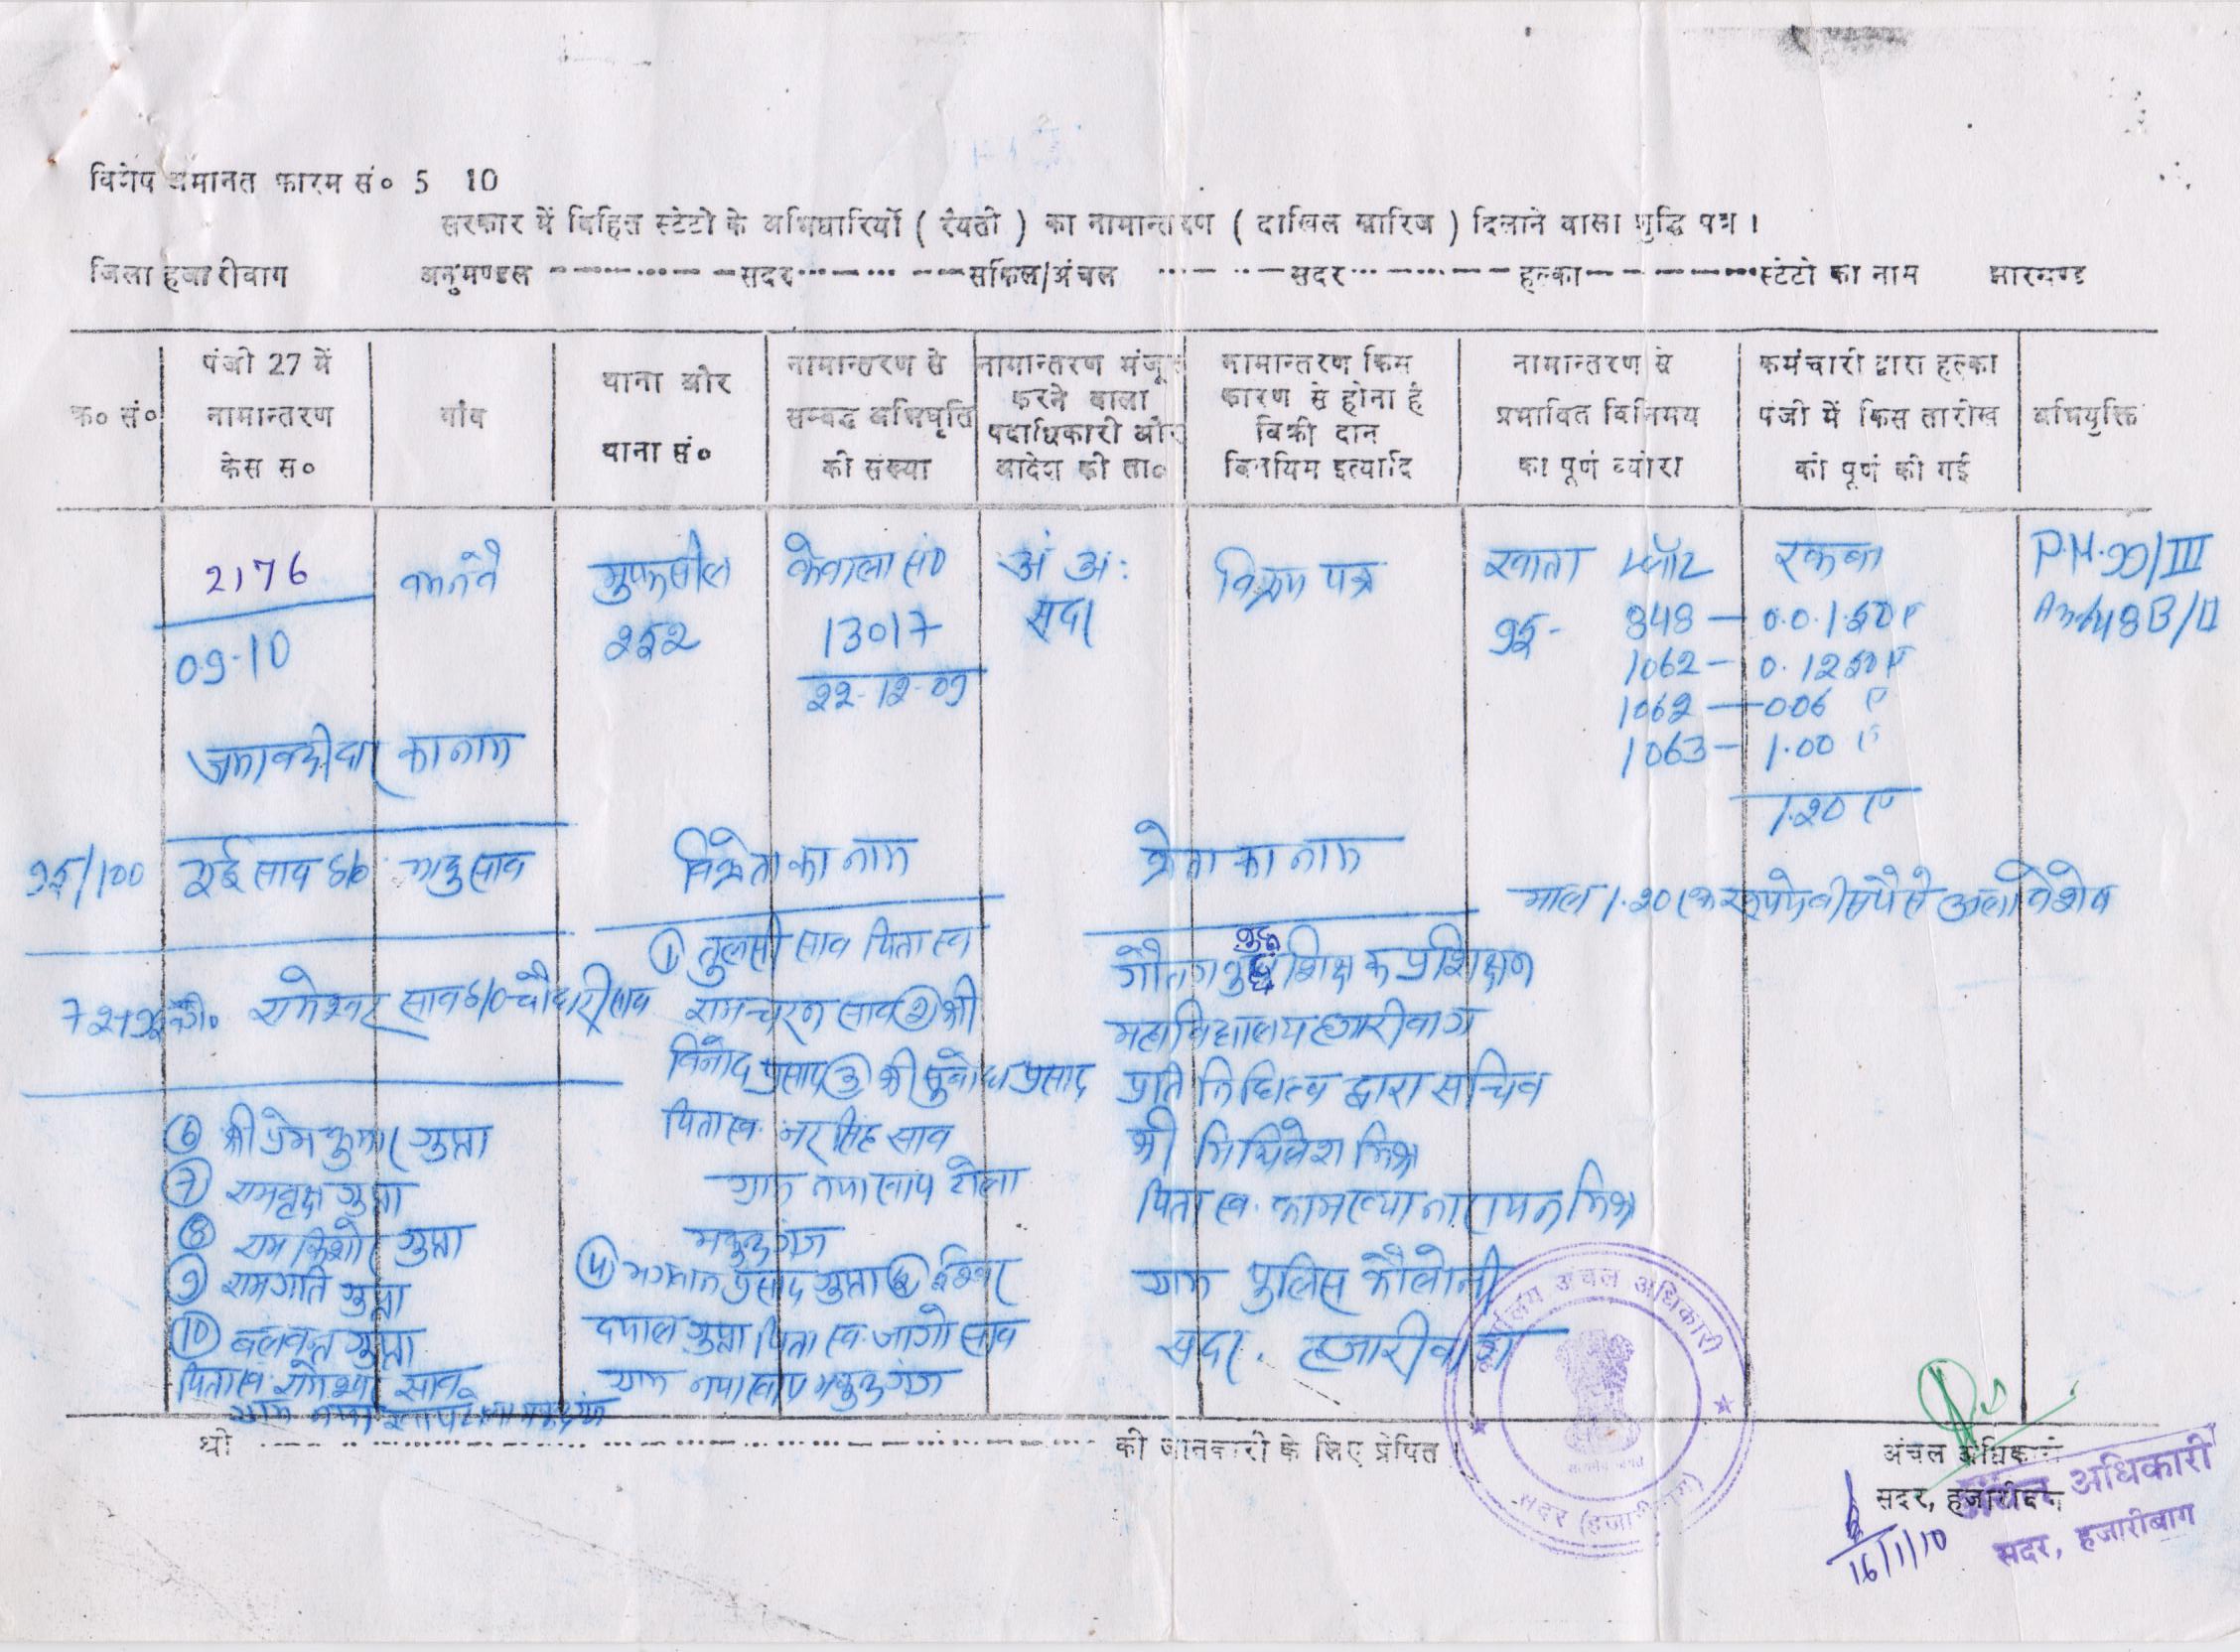 विशेष जमानत फारम सं० 5 10
सरकार में विहित स्टेटो के अभिधारियों ( रैयतो ) का नामान्तरण ( दाखिल खारिज ) दिलाने वाला शुद्धि पत्र ।
जिला हजारीबाग अनुमण्डल सदर सर्किल/अंचल सदर हल्का स्टेटो का नाम झारखण्ड
क्र० सं०
पंजी 27 में
नामान्तरण
केस स०
गाँव
थाना और
थाना सं०
नामान्तरण से
सम्बद्ध अभिधृति
की संख्या
नामान्तरण मंजूर
करने वाला
पदाधिकारी और
आदेश की ता०
नामान्तरण किस
कारण से होना है
बिक्री दान
विनयिम इत्यादि
नामान्तरण से
प्रभावित विनिमय
का पूर्ण ब्योरा
कर्मचारी द्वारा हल्का
पंजी में किस तारीख
को पूर्ण की गई
अभियुक्ति
2176
09-10
मुफसील
252
केवाला सं०
13017
22-12-09
अं अ:
सदर
विक्रय पत्र
खाता प्लॉट रकबा
95-
848 — 0.0.1.50
1062 — 0.1250
1062 — 006
1063 — 1.00
1.20 ए
P.M.90/III
48B/II
जमाबन्दीदार का नाम
95/100 साव S/o साव
विक्रेता का नाम
क्रेता का नाम
माल 1.20
रामेश्वर साव S/o चौधरी साव
① तुलसी साव पिता स्व
रामचरण साव ② श्री
विनोद प्रसाद ③ श्री सुबोध प्रसाद
पिता स्व. नरसिंह साव
ग्राम नया खाप टोला
मटकुन्दगंज
④ प्रसाद गुप्ता ⑤ ईश्वर
दयाल गुप्ता पिता स्व. जागो साव
ग्राम नया खाप
⑥ श्री प्रेम कुमार गुप्ता
⑦ रामवृक्ष गुप्ता
⑧ राम किशोर गुप्ता
⑨ रामगति गुप्ता
⑩ बलवन्त गुप्ता
पिता स्व. रामेश्वर साव
गौतम बुद्ध शिक्षक प्रशिक्षण
महाविद्यालय हजारीबाग
प्रतिनिधित्व द्वारा सचिव
श्री मिथिलेश मिश्र
पिता स्व. कामख्या नारायन मिश्र
ग्राम पुलिस कौलोनी
सदर. हजारीबाग
श्री की जानकारी के लिए प्रेषित ।
अंचल अधिकारी
सदर, हजारीबाग
अंचल अधिकारी
सदर, हजारीबाग
16/1/10
अंचल अधिकारी
सदर (हजारीबाग)